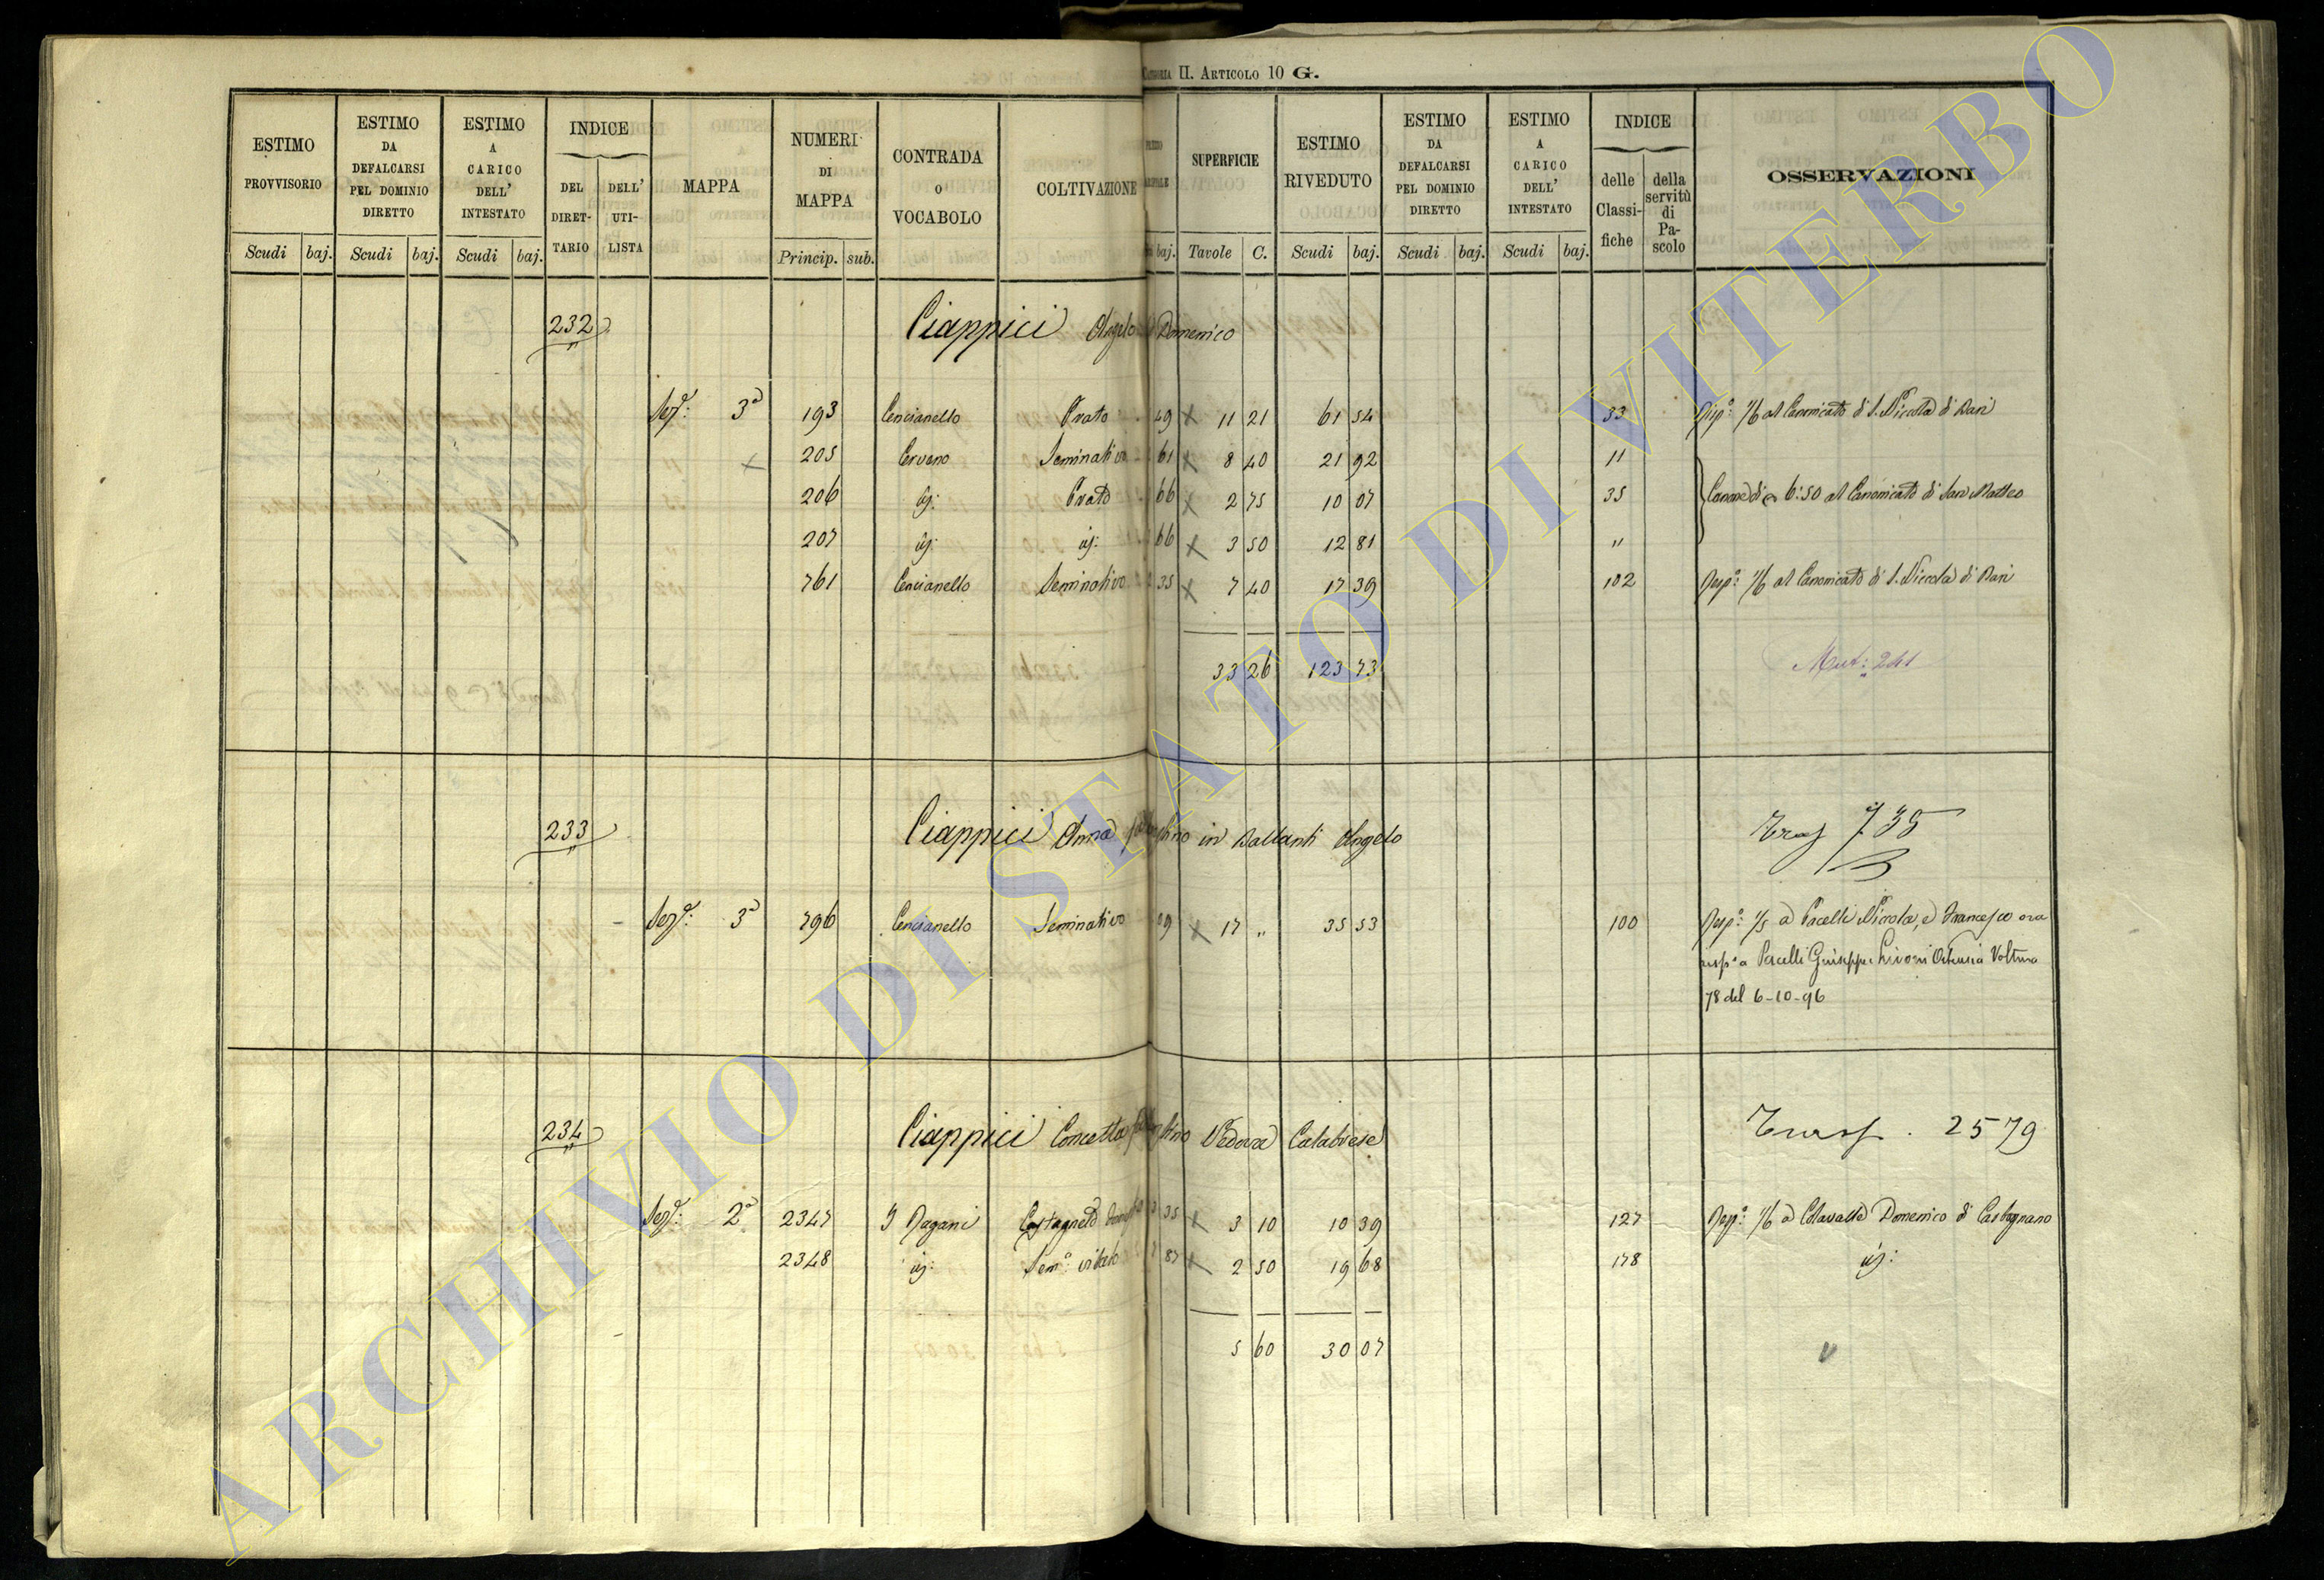 Categoria II. Articolo 10 G.
ESTIMO PROVVISORIO
ESTIMO DA DEFALCARSI PEL DOMINIO DIRETTO
ESTIMO A CARICO DELL' INTESTATO
INDICE
DEL DIRET- TARIO
DELL' UTI- LISTA
MAPPA
NUMERI DI MAPPA
CONTRADA O VOCABOLO
COLTIVAZIONE
SUPERFICIE
ESTIMO RIVEDUTO
ESTIMO DA DEFALCARSI PEL DOMINIO DIRETTO
ESTIMO A CARICO DELL' INTESTATO
INDICE
delle Classi- fiche
della servitù di Pa- scolo
OSSERVAZIONI
Scudi baj. Scudi baj. Scudi baj. Princip. sub. baj. Tavole C. Scudi baj. Scudi baj. Scudi baj.
232 Ciappici Angelo Domenico
Sez.e: 3a 193 Cencianello Prato 49 11 21 61 54 33 Risp.a: 1/6 al Canonicato di S. Niccola di Bari
205 Cerveno Seminativo 61 8 40 21 92 11
206 id: Prato 66 2 75 10 07 35 Canone di 6:50 al Canonicato di San Matteo
207 id: id: 66 3 50 12 81 "
761 Cencianello Seminativo 35 7 40 17 39 102 Risp.a: 1/6 al Canonicato di S. Niccola di Bari
33 26 123 73 Mut: 241
233 Ciappici Anna in Ballanti Angelo Trasf 735
Sez.e: 3a 796 Cencianello Seminativo 09 17 " 35 53 100 Risp.a: 1/5 a Pacelli Niccola, e Francesco ora
risp.a a Pacelli Giuseppe Livoni Ortensia Voltura
78 del 6-10-96
234 Ciappici Concetta Vedova Calabrese Trasf. 2579
Sez.e: 2a 2347 I Pagani Castagneto 35 3 10 10 39 127 Risp.a: 1/6 a Colavalle Domenico di Castagnano
2348 id: Sem.o: vitato 87 2 50 19 68 178 id:
5 60 30 07
ARCHIVIO DI STATO DI VITERBO